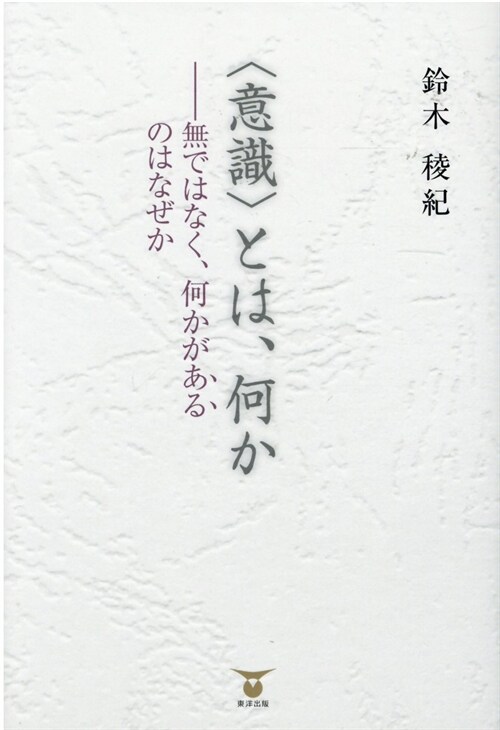 鈴木 稜紀
〈意識〉とは、何か
──無ではなく、何かがある
のはなぜか
東洋出版